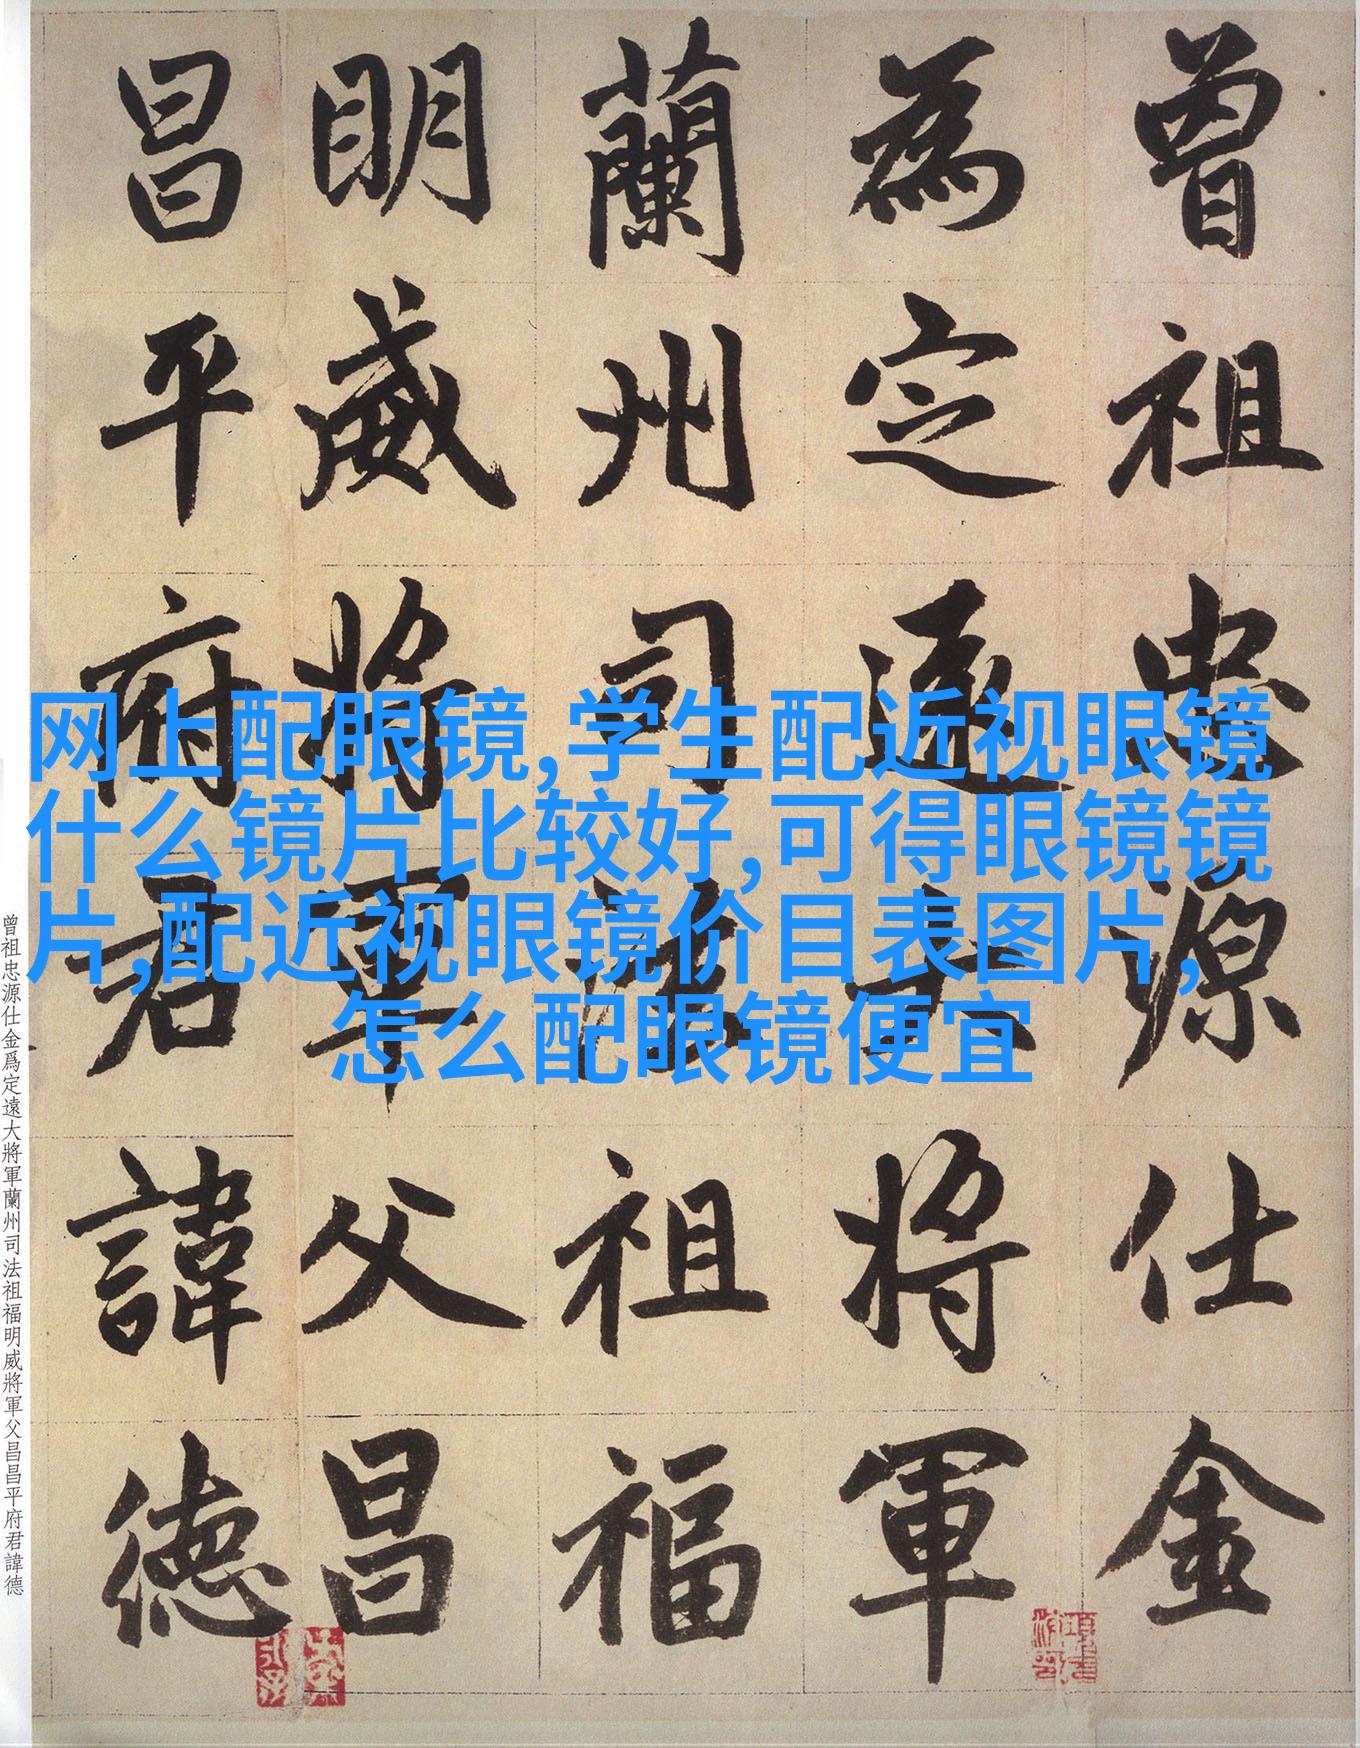 曾祖忠源仕金
為定遠大將軍
蘭州司法祖福
明威將軍父昌
昌平府君諱德
网上配眼镜,学生配近视眼镜
什么镜片比较好,可得眼镜镜
片,配近视眼镜价目表图片,
怎么配眼镜便宜
曾祖忠源仕金爲定遠大將軍蘭州司法祖福明威將軍父昌昌平府君諱德